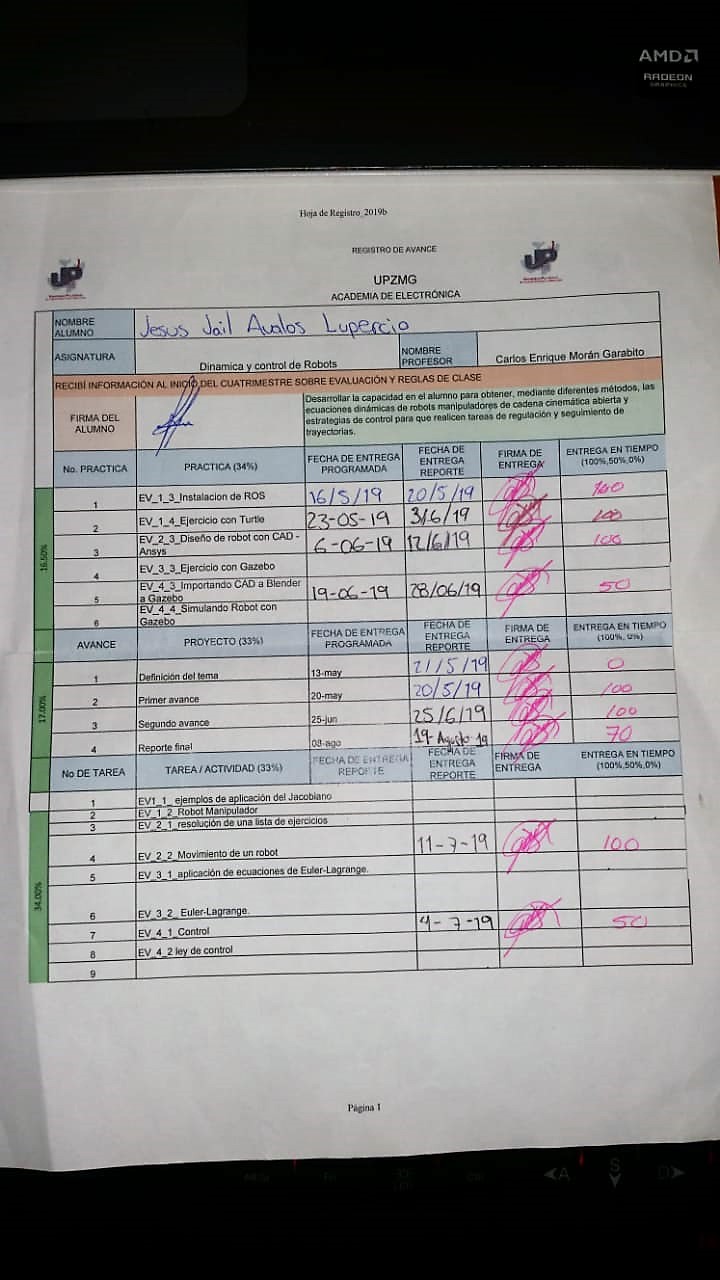 AMD
RADEON
GRAPHICS
Hoja de Registro_2019b
REGISTRO DE AVANCE
UPZMG
ACADEMIA DE ELECTRÓNICA
NOMBRE ALUMNO Jesus Jail Avalos Lupercio
ASIGNATURA Dinamica y control de Robots NOMBRE PROFESOR Carlos Enrique Morán Garabito
RECIBÍ INFORMACIÓN AL INICIO DEL CUATRIMESTRE SOBRE EVALUACIÓN Y REGLAS DE CLASE
FIRMA DEL ALUMNO
Desarrollar la capacidad en el alumno para obtener, mediante diferentes métodos, las
ecuaciones dinámicas de robots manipuladores de cadena cinemática abierta y
estrategias de control para que realicen tareas de regulación y seguimiento de
trayectorias.
No. PRACTICA PRACTICA (34%) FECHA DE ENTREGA PROGRAMADA FECHA DE ENTREGA REPORTE FIRMA DE ENTREGA ENTREGA EN TIEMPO (100%,50%,0%)
16.50%
1 EV_1_3_Instalacion de ROS 16/5/19 20/5/19 100
2 EV_1_4_Ejercicio con Turtle 23-05-19 3/6/19 100
3 EV_2_3_Diseño de robot con CAD - Ansys 6-06-19 12/6/19 100
4 EV_3_3_Ejercicio con Gazebo
5 EV_4_3_Importando CAD a Blender a Gazebo 19-06-19 28/06/19 50
6 EV_4_4_Simulando Robot con Gazebo
AVANCE PROYECTO (33%) FECHA DE ENTREGA PROGRAMADA FECHA DE ENTREGA REPORTE FIRMA DE ENTREGA ENTREGA EN TIEMPO (100%, 0%)
17.00%
1 Definición del tema 13-may 21/5/19 0
2 Primer avance 20-may 20/5/19 100
3 Segundo avance 25-jun 25/6/19 100
4 Reporte final 08-ago 19-Agosto-19 70
No DE TAREA TAREA / ACTIVIDAD (33%) FECHA DE ENTREGA REPORTE FECHA DE ENTREGA REPORTE FIRMA DE ENTREGA ENTREGA EN TIEMPO (100%,50%,0%)
34.00%
1 EV1_1_ ejemplos de aplicación del Jacobiano
2 EV_1_2_Robot Manipulador
3 EV_2_1_resolución de una lista de ejercicios
4 EV_2_2_Movimiento de un robot 11-7-19 100
5 EV_3_1_aplicación de ecuaciones de Euler-Lagrange.
6 EV_3_2_ Euler-Lagrange.
7 EV_4_1_Control 4-7-19 50
8 EV_4_2 ley de control
9
Página 1
A
S
D